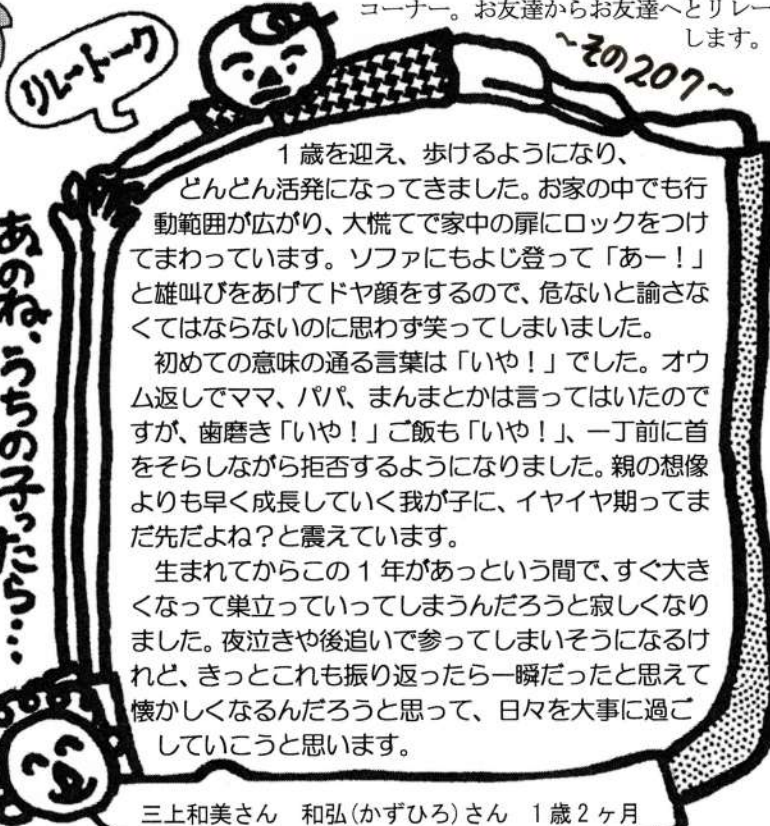 コーナー。お友達からお友達へとリレー
します。
リレートーク
~その207~
あのね、うちの子ったら・・・
1歳を迎え、歩けるようになり、
どんどん活発になってきました。お家の中でも行
動範囲が広がり、大慌てで家中の扉にロックをつけ
てまわっています。ソファにもよじ登って「あー！」
と雄叫びをあげてドヤ顔をするので、危ないと諭さな
くてはならないのに思わず笑ってしまいました。
初めての意味の通る言葉は「いや！」でした。オウ
ム返しでママ、パパ、まんまとかは言ってはいたので
すが、歯磨き「いや！」ご飯も「いや！」、一丁前に首
をそらしながら拒否するようになりました。親の想像
よりも早く成長していく我が子に、イヤイヤ期ってま
だ先だよね？と震えています。
生まれてからこの1年があっという間で、すぐ大き
くなって巣立っていってしまうんだろうと寂しくなり
ました。夜泣きや後追いで参ってしまいそうになるけ
れど、きっとこれも振り返ったら一瞬だったと思えて
懐かしくなるんだろうと思って、日々を大事に過ご
していこうと思います。
三上和美さん 和弘(かずひろ)さん 1歳2ヶ月